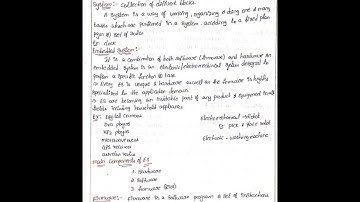 System:- Collection of different blocks.
A system is a way of working, organizing & doing one & many
tasks which are performed in a system according to a fixed plan
pgm & set of rules
Ex: clock
Embedded System:-
It is a combination of both software (firmware) and hardware an
embedded system is an electronic/electromechanical system designed to
perform a specific function & task
→ Every ES is unique & hardware as well as the firmware is highly
specialized to the application domain.
→ ES are becoming an inevitable part of any product & equipment
fields including household appliances
Ex: Digital camera Electromechanical - robot
DVD players Ex: pick & place robot
MP3 players
microwave ovens Electronic - washing machine
GPS receivers
Main Components of ES
1. Hardware
2. Software
3. firmware
Firmware:- Firmware is a software program & set of instructions